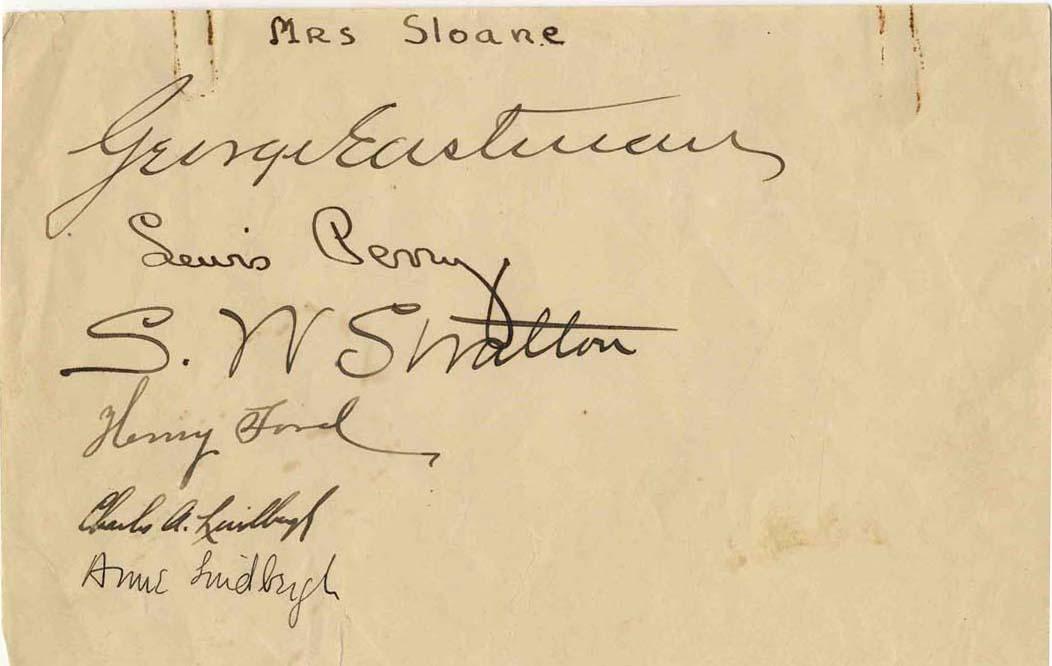 Mrs Sloane
George Eastman
Lewis Perry
S. W Stratton
Henry Ford
Charles A. Lindbergh
Anne Lindbergh